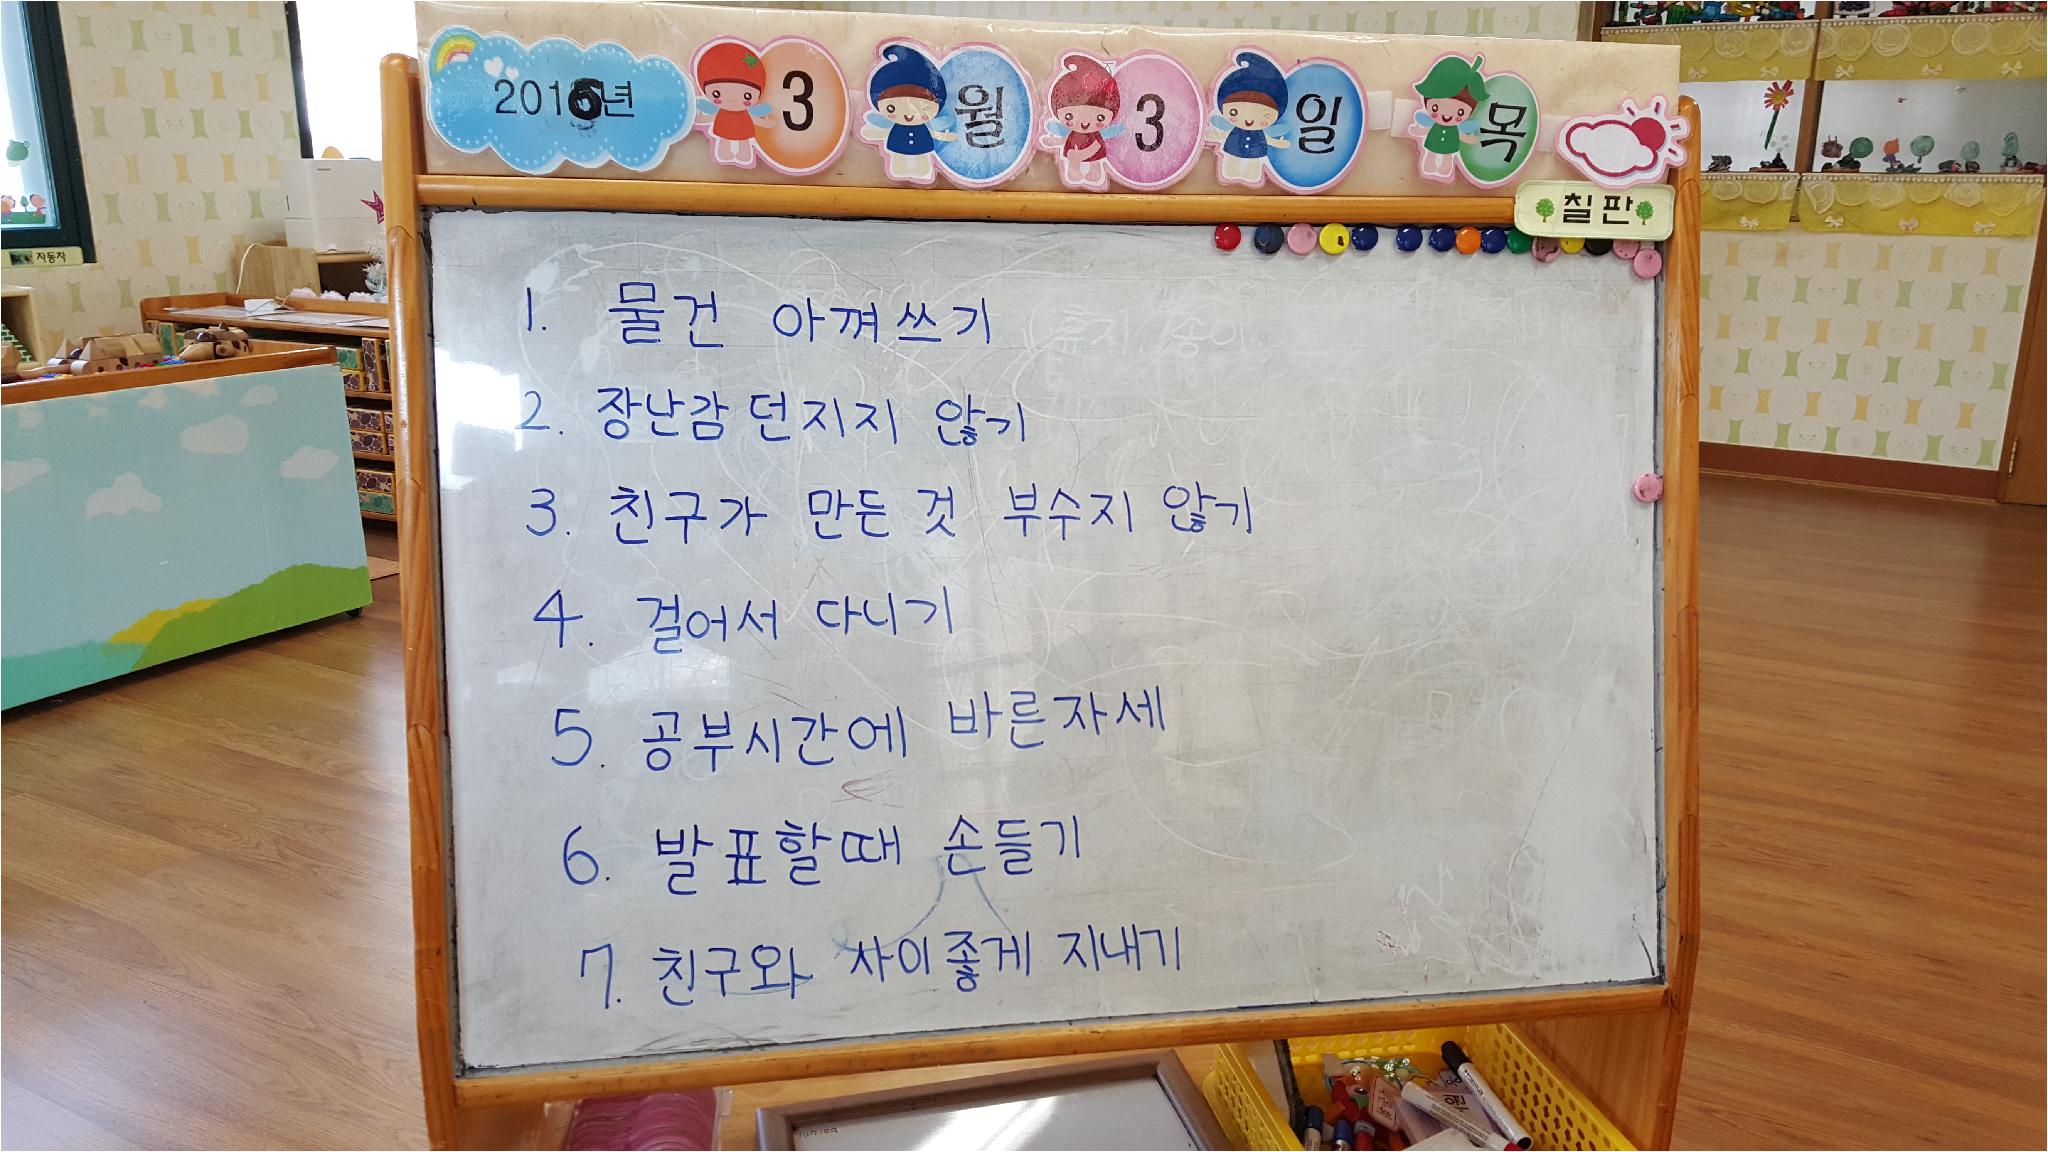 2016년 3 월 3 일 목
칠판
자동차
1. 물건 아껴쓰기
2. 장난감 던지지 않기
3. 친구가 만든 것 부수지 않기
4. 걸어서 다니기
5. 공부시간에 바른자세
6. 발표할때 손들기
7. 친구와 사이좋게 지내기